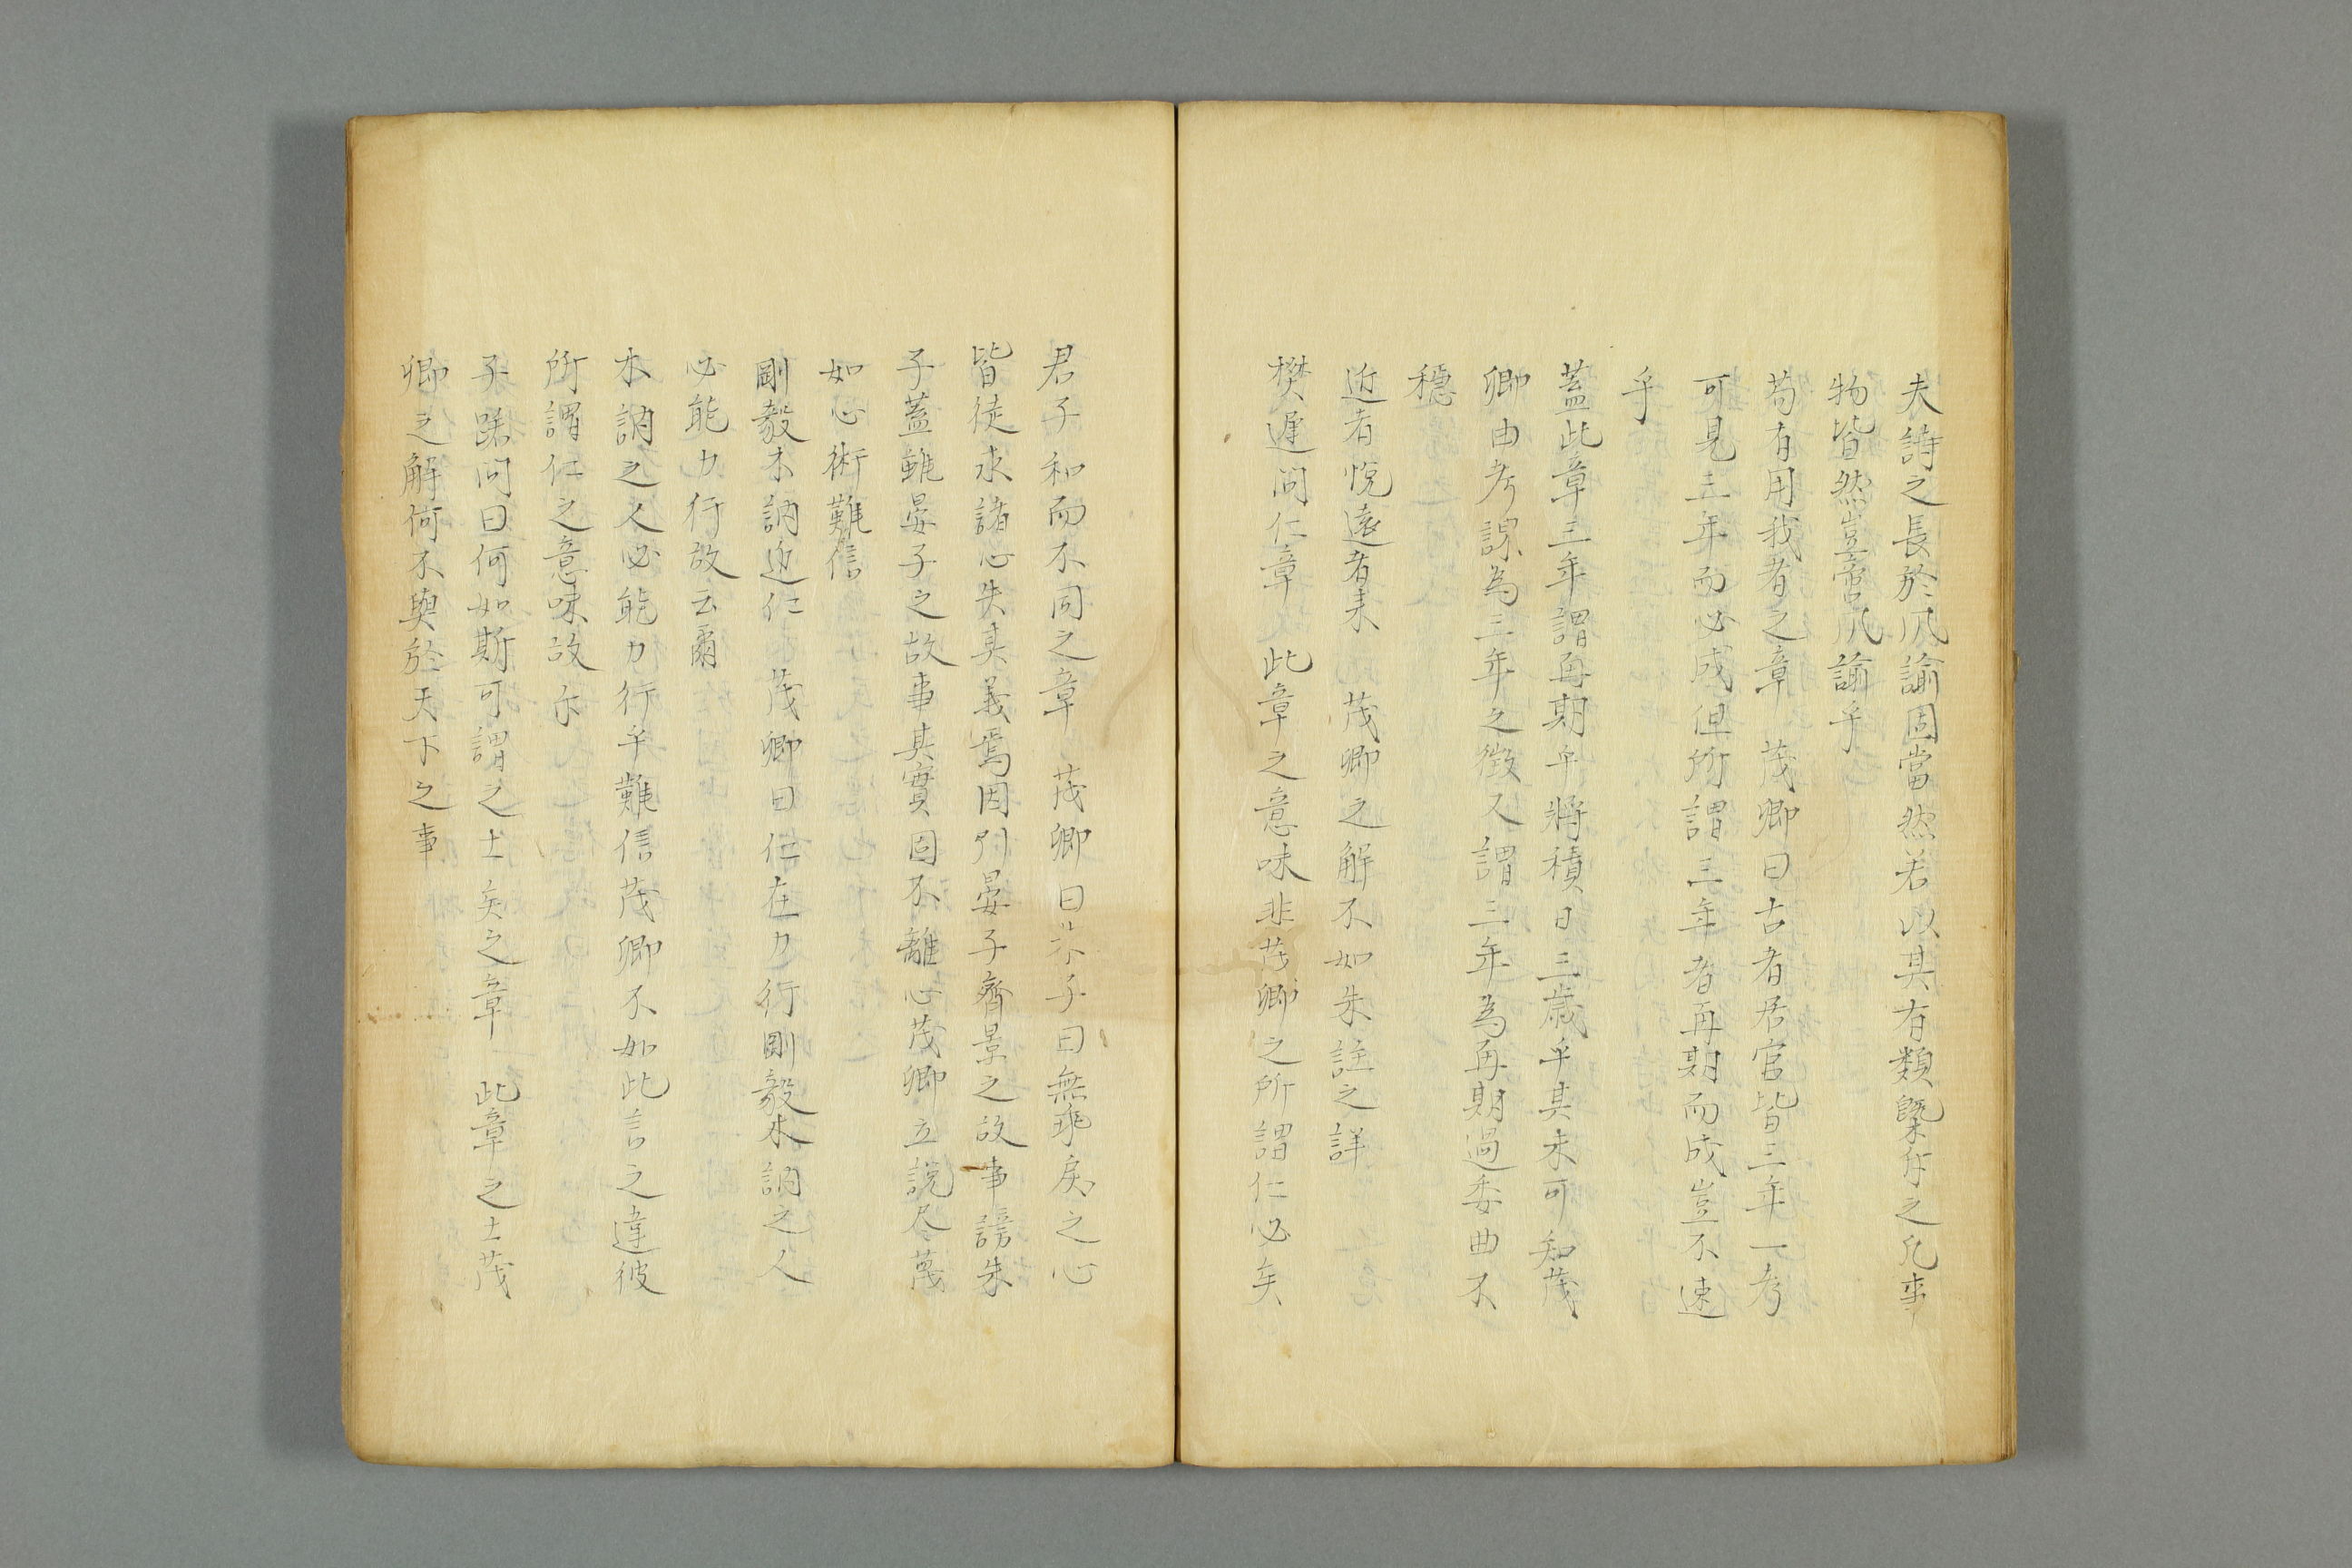 夫詩之長於風諭固當然若以其有類槩斥之凡事
物皆然豈啻風諭乎
苟有用我者之章 茂卿曰古者居官皆三年一考
可見三年而必成但所謂三年者再期而成豈不速
乎
蓋此章三年謂再期乎將積日三歳乎其未可知茂
卿由考課為三年之徴又謂三年為再期過委曲不
穩
近者悅遠者来 茂卿之解不如朱註之詳
樊遲問仁章 此章之意味非茂卿之所謂仁必矣
君子和而不同之章 茂卿曰朱子曰無乖戻之心
皆徒求諸心失其義焉因引晏子齊景之故事謗朱
子蓋雖晏子之故事其實固不離心茂卿立説尽蔑
如心術難信
剛毅木訥近仁 茂卿曰仁在力行剛毅木訥之人
必能力行故云爾
木訥之人必能力行乎難信茂卿不如此言之違彼
所謂仁之意味故尓
子路問曰何如斯可謂之士矣之章 此章之士茂
卿之解何不與於天下之事